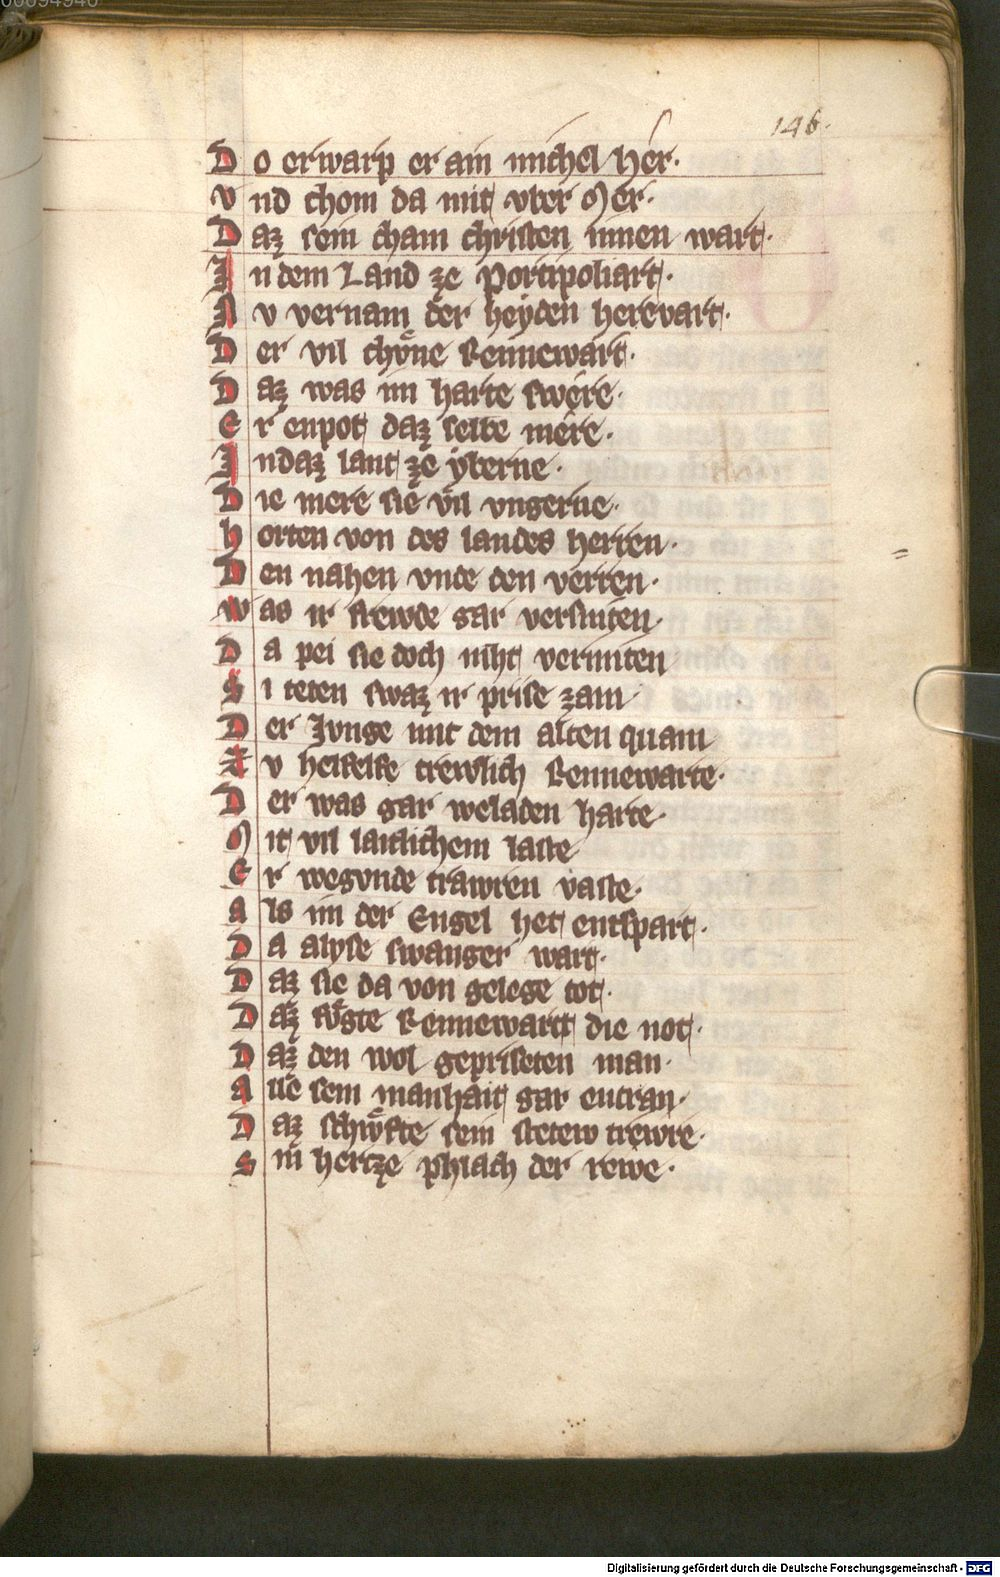 146.
Do erwarp er ain michel Her.
Vnd chom da mit vber Mer.
Daz sein chain christen innen wart.
In dem Land ze Portipoliart.
Nv vernam der heyden herevart.
Der vil chöne Rennewart.
Daz was im harte swere.
Er enpot daz selbe mere.
Indaz lant ze yberne.
Die mere sie vil vngerne.
Horten von des landes herren.
Den nahen vnde den verren.
Was ir frewde gar versniten.
Da pei sie doch niht vermiten
Si teten swaz ir prise zam
Der Jvnge mit dem alten quam
Zv helfelse trewlich Rennewarte.
Der was gar weladen harte.
Mit vil laitlichem laste
Er wegvnde trawren vaste.
Als im der Engel het entspart.
Da alyse swanger wart.
Daz sie da von gelege tot.
Daz fügte Rennewart die not.
Daz den wol gepriseten man.
Alle sein manhait gar entran.
Daz schüfte sein stetew trewre.
Sin hertze phlach der rewe.
Digitalisierung gefördert durch die Deutsche Forschungsgemeinschaft - DFG